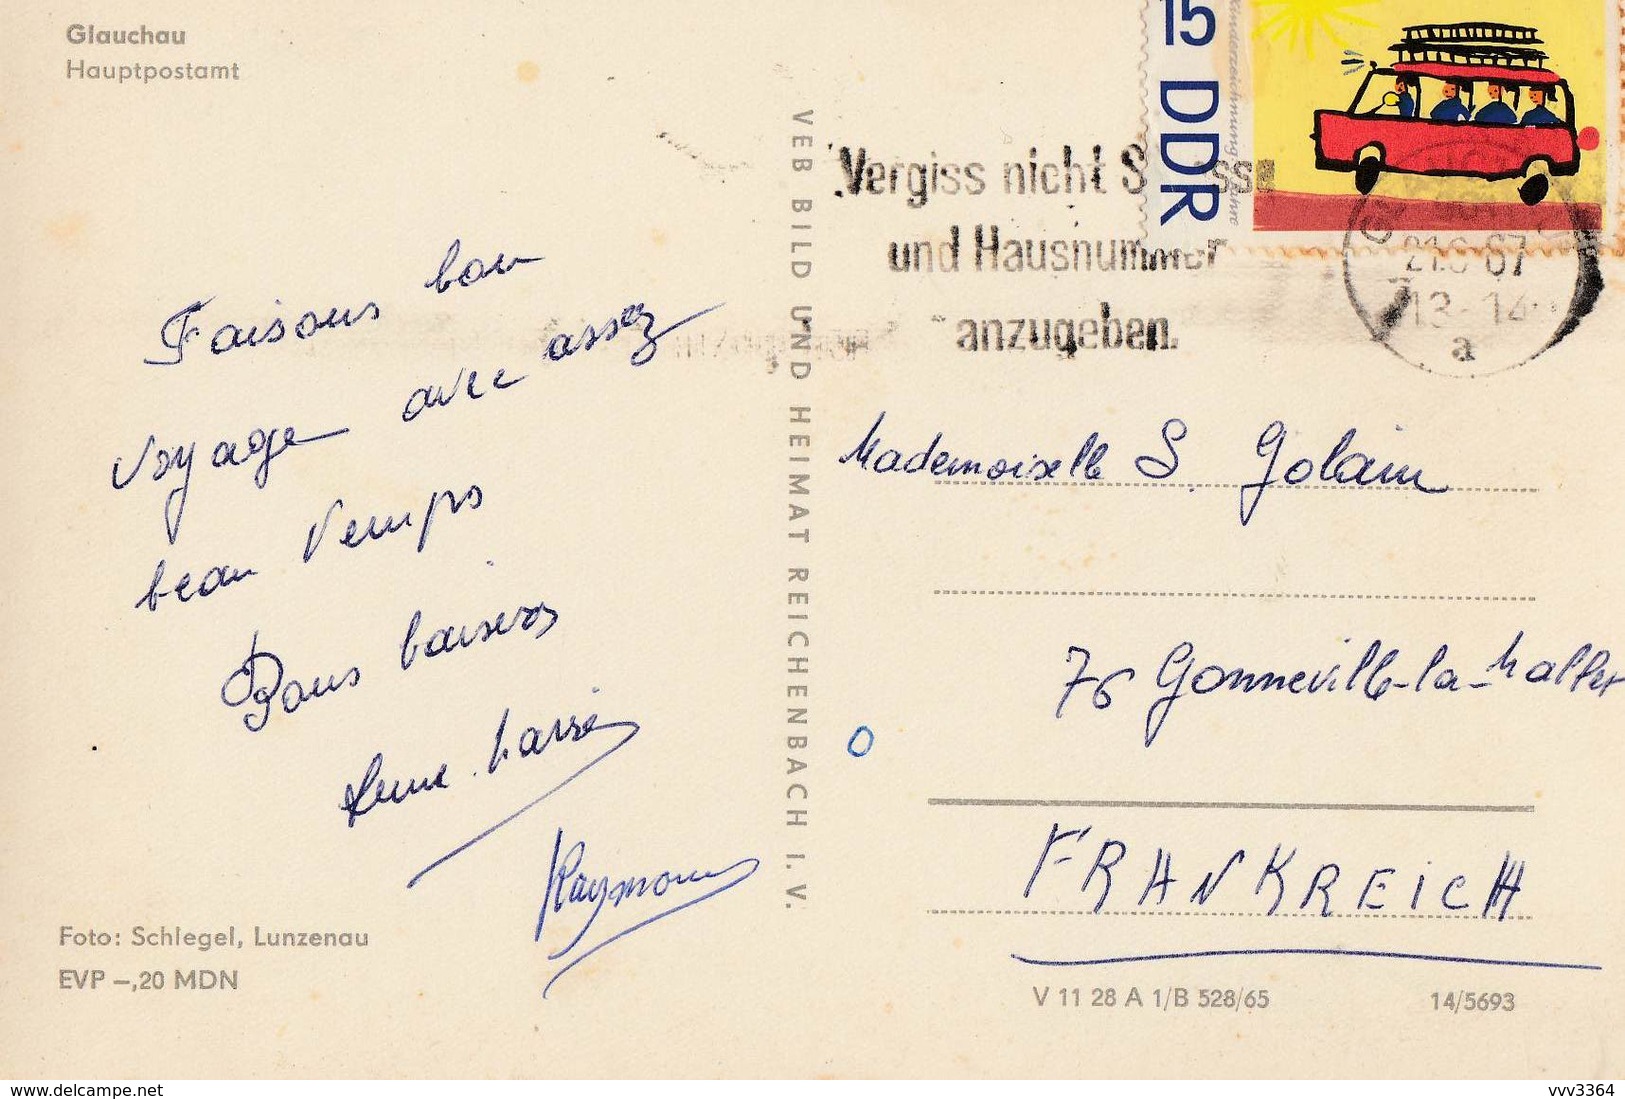 Glauchau
Hauptpostamt
15 DDR
Kinderzeichnung
Vergiss nicht S
und Hausnummer
anzugeben.
21.6 67
13-14
a
Faisons bon
voyage avec assez
beau temps
Bons baisers
Raymond
VEB BILD UND HEIMAT REICHENBACH I. V.
Mademoiselle S. Golain
76 Gonneville-la-Mallet
FRANKREICH
Foto: Schlegel, Lunzenau
EVP –,20 MDN
V 11 28 A 1/B 528/65
14/5693
delcampe.net
vvv3364